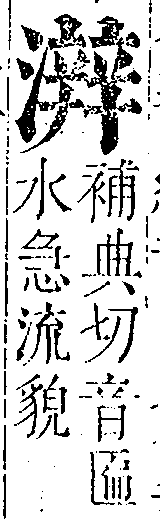 補典切音匾
水急流貌